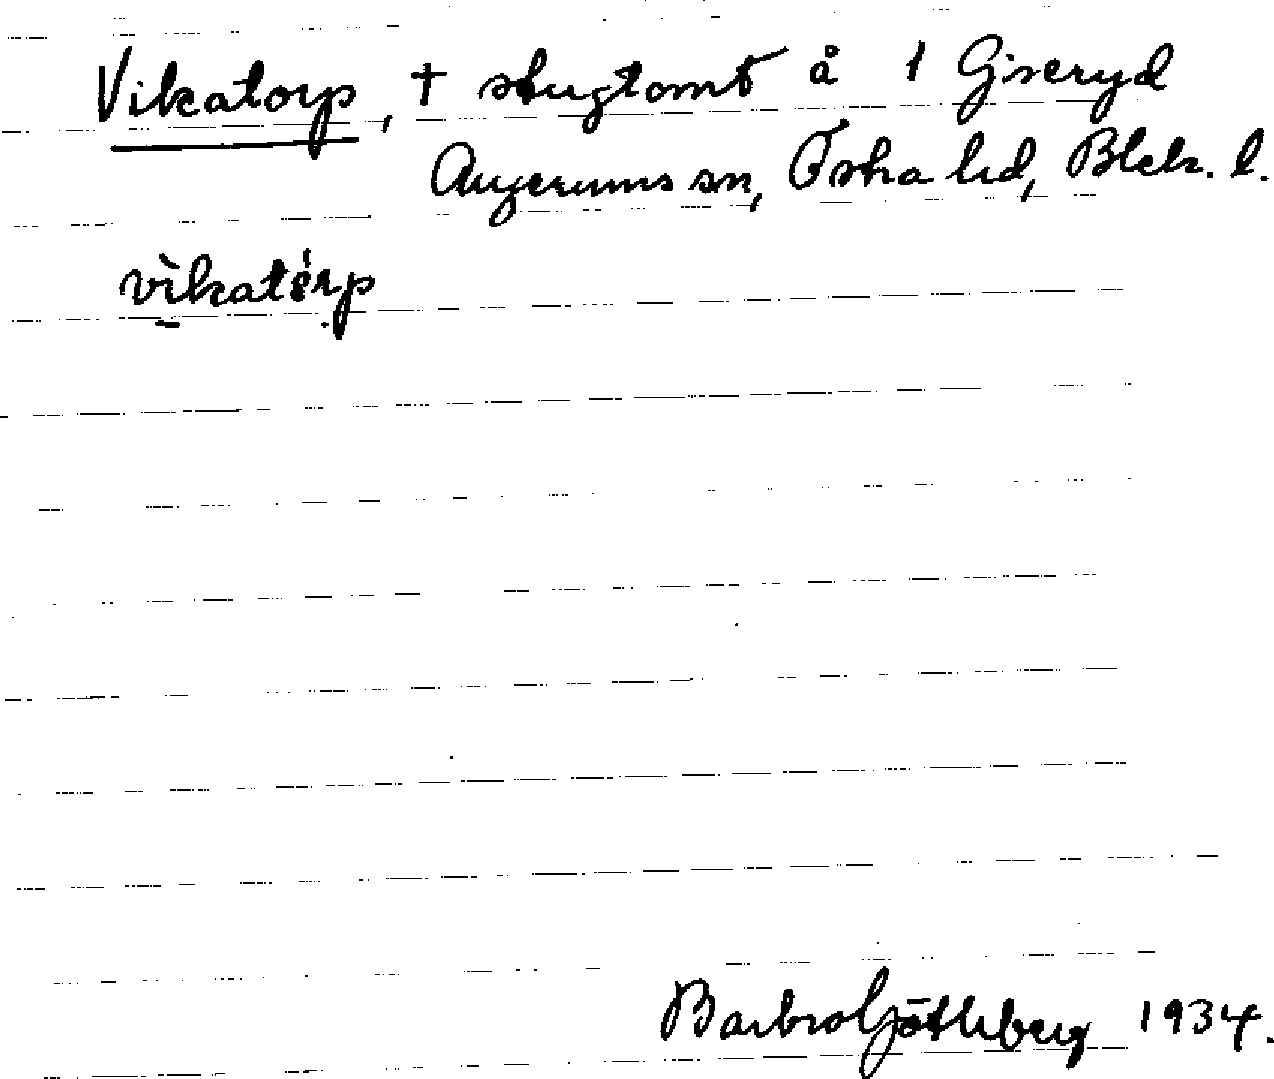 Vikatorp, † stugtomt å 1 Giseryd
Augerums sn, Östra hd, Blek. l.
vìkatórp
Barbro Götherberg 1934.